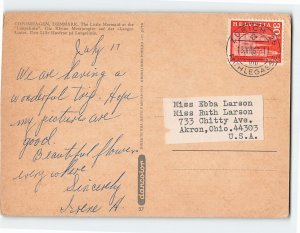 COPENHAGEN, DENMARK. The Little Mermaid at the
"Langelinie". Die Kleine Meerjungfer auf der „Lange-
linie". Den Lille Havfrue på Langelinie.
July 17
We are having a
wonderful trip. Hope
my pictures are
good.
Beautiful flowers
everywhere
Sincerely
Irene A.
dancolor
HELVETIA
30
Miss Ebba Larson
Miss Ruth Larson
733 Chitty Ave.
Akron,Ohio.44303
U.S.A.